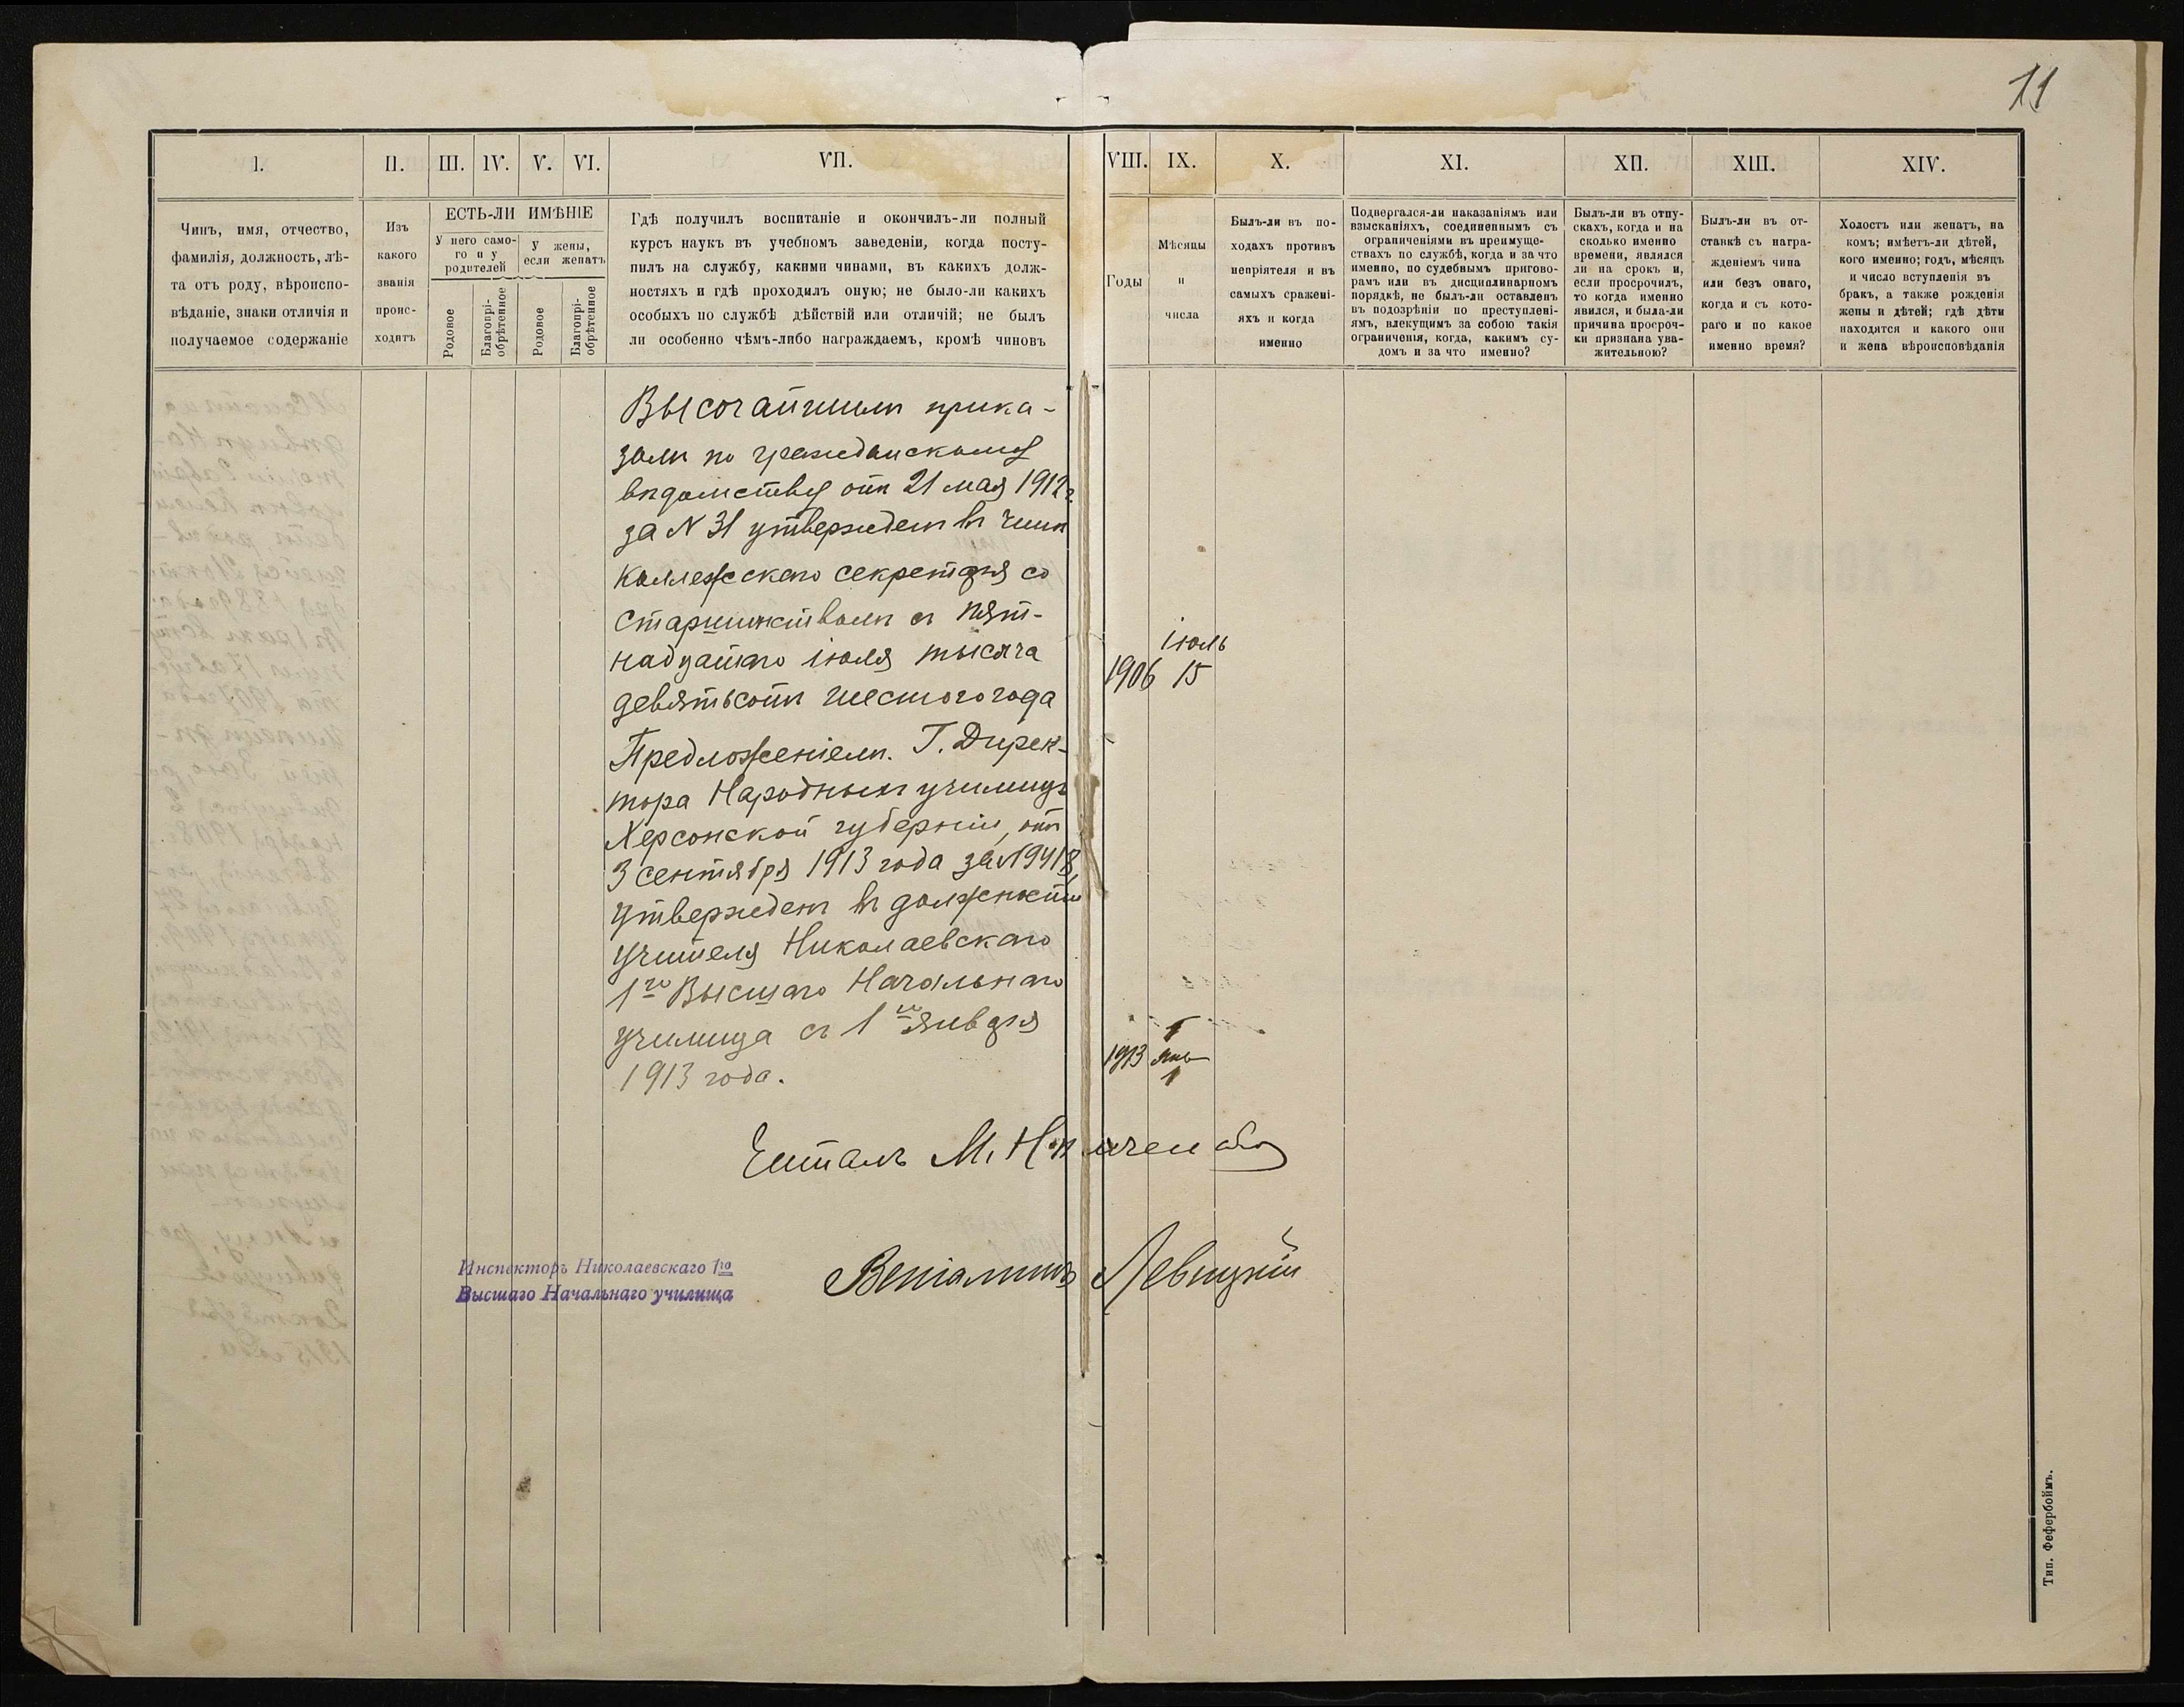 11
I.
II.
III.
IV.
V.
VI.
VII.
VIII.
IX.
X.
XI.
XII.
XIII.
XIV.
Чинъ, имя, отчество,
фамилія, должность, лѣ-
та отъ роду, вѣроиспо-
вѣданіе, знаки отличія и
получаемое содержаніе
Изъ
какого
званія
проис-
ходитъ
ЕСТЬ-ЛИ ИМѢНІЕ
У него само-
го и у
родителей
У жены,
если женатъ
Родовое
Благопрі-
обрѣтенное
Родовое
Благопрі-
обрѣтенное
Гдѣ получилъ воспитаніе и окончилъ-ли полный
курсъ наукъ въ учебномъ заведеніи, когда посту-
пилъ на службу, какими чинами, въ какихъ долж-
ностяхъ и гдѣ проходилъ оную; не было-ли какихъ
особыхъ по службѣ дѣйствій или отличій; не былъ
ли особенно чѣмъ-либо награждаемъ, кромѣ чиновъ
Годы
Мѣсяцы
и
числа
Былъ-ли въ по-
ходахъ противъ
непріятеля и въ
самыхъ сражені-
яхъ и когда
именно
Подвергался-ли наказаніямъ или
взысканіяхъ, соединеннымъ съ
ограниченіями въ преимуще-
ствахъ по службѣ, когда и за что
именно, по судебнымъ пригово-
рамъ или въ дисциплинарномъ
порядкѣ, не былъ-ли оставленъ
въ подозрѣніи по преступлені-
ямъ, влекущимъ за собою такія
ограниченія, когда, какимъ су-
домъ и за что именно?
Былъ-ли въ отпу-
скахъ, когда и на
сколько именно
времени, являлся
ли на срокъ и,
если просрочилъ,
то когда именно
явился, и была-ли
причина просроч-
ки признана ува-
жительною?
Былъ-ли въ от-
ставкѣ съ награ-
жденіемъ чина
или безъ онаго,
когда и съ кото-
раго и по какое
именно время?
Холостъ или женатъ, на
комъ; имѣетъ-ли дѣтей,
кого именно; годъ, мѣсяцъ
и число вступленія въ
бракъ, а также рожденія
жены и дѣтей; гдѣ дѣти
находятся и какого они
и жена вѣроисповѣданія
Высочайшимъ прика-
зомъ по гражданскому
вѣдомству отъ 21 мая 1912 г.
за N 31 утвержденъ въ чинѣ
Коллежскаго секретаря со
старшинствомъ съ пят-
надцатаго іюля тысяча
девятьсотъ шестого года
іюль
1906 15
Предложеніемъ Г. Дирек-
тора Народныхъ училищъ
Херсонской губерніи, отъ
3 сентября 1913 года за N 9418,
утвержденъ въ должности
учителя Николаевскаго
1го Высшаго Начальнаго
училища съ 1го января
1913 года.
1913 янв
1
Читалъ М.
Инспекторъ Николаевскаго 1го
Высшаго Начальнаго училища
Веніаминъ Левицкій
Тип. Фефербоймъ.